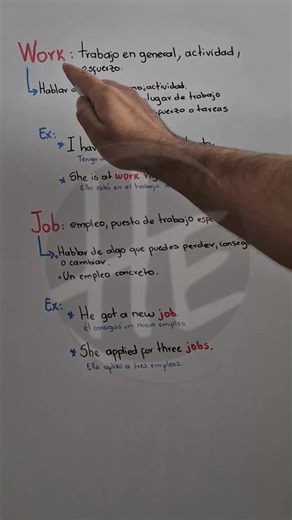 Work: trabajo en general, actividad,
esfuerzo.
Hablar actividad.
lugar de trabajo
o tareas
Ex:
* I hav
Tengo
* She is at work
Ella está en el trabajo
Job: empleo, puesto de trabajo
• Hablar de algo que puedes perder,
o cambiar.
• Un empleo concreto.
Ex:
* He got a new job
Él consiguió un nuevo empleo
* She applied for three jobs.
Ella aplicó a tres empleos.